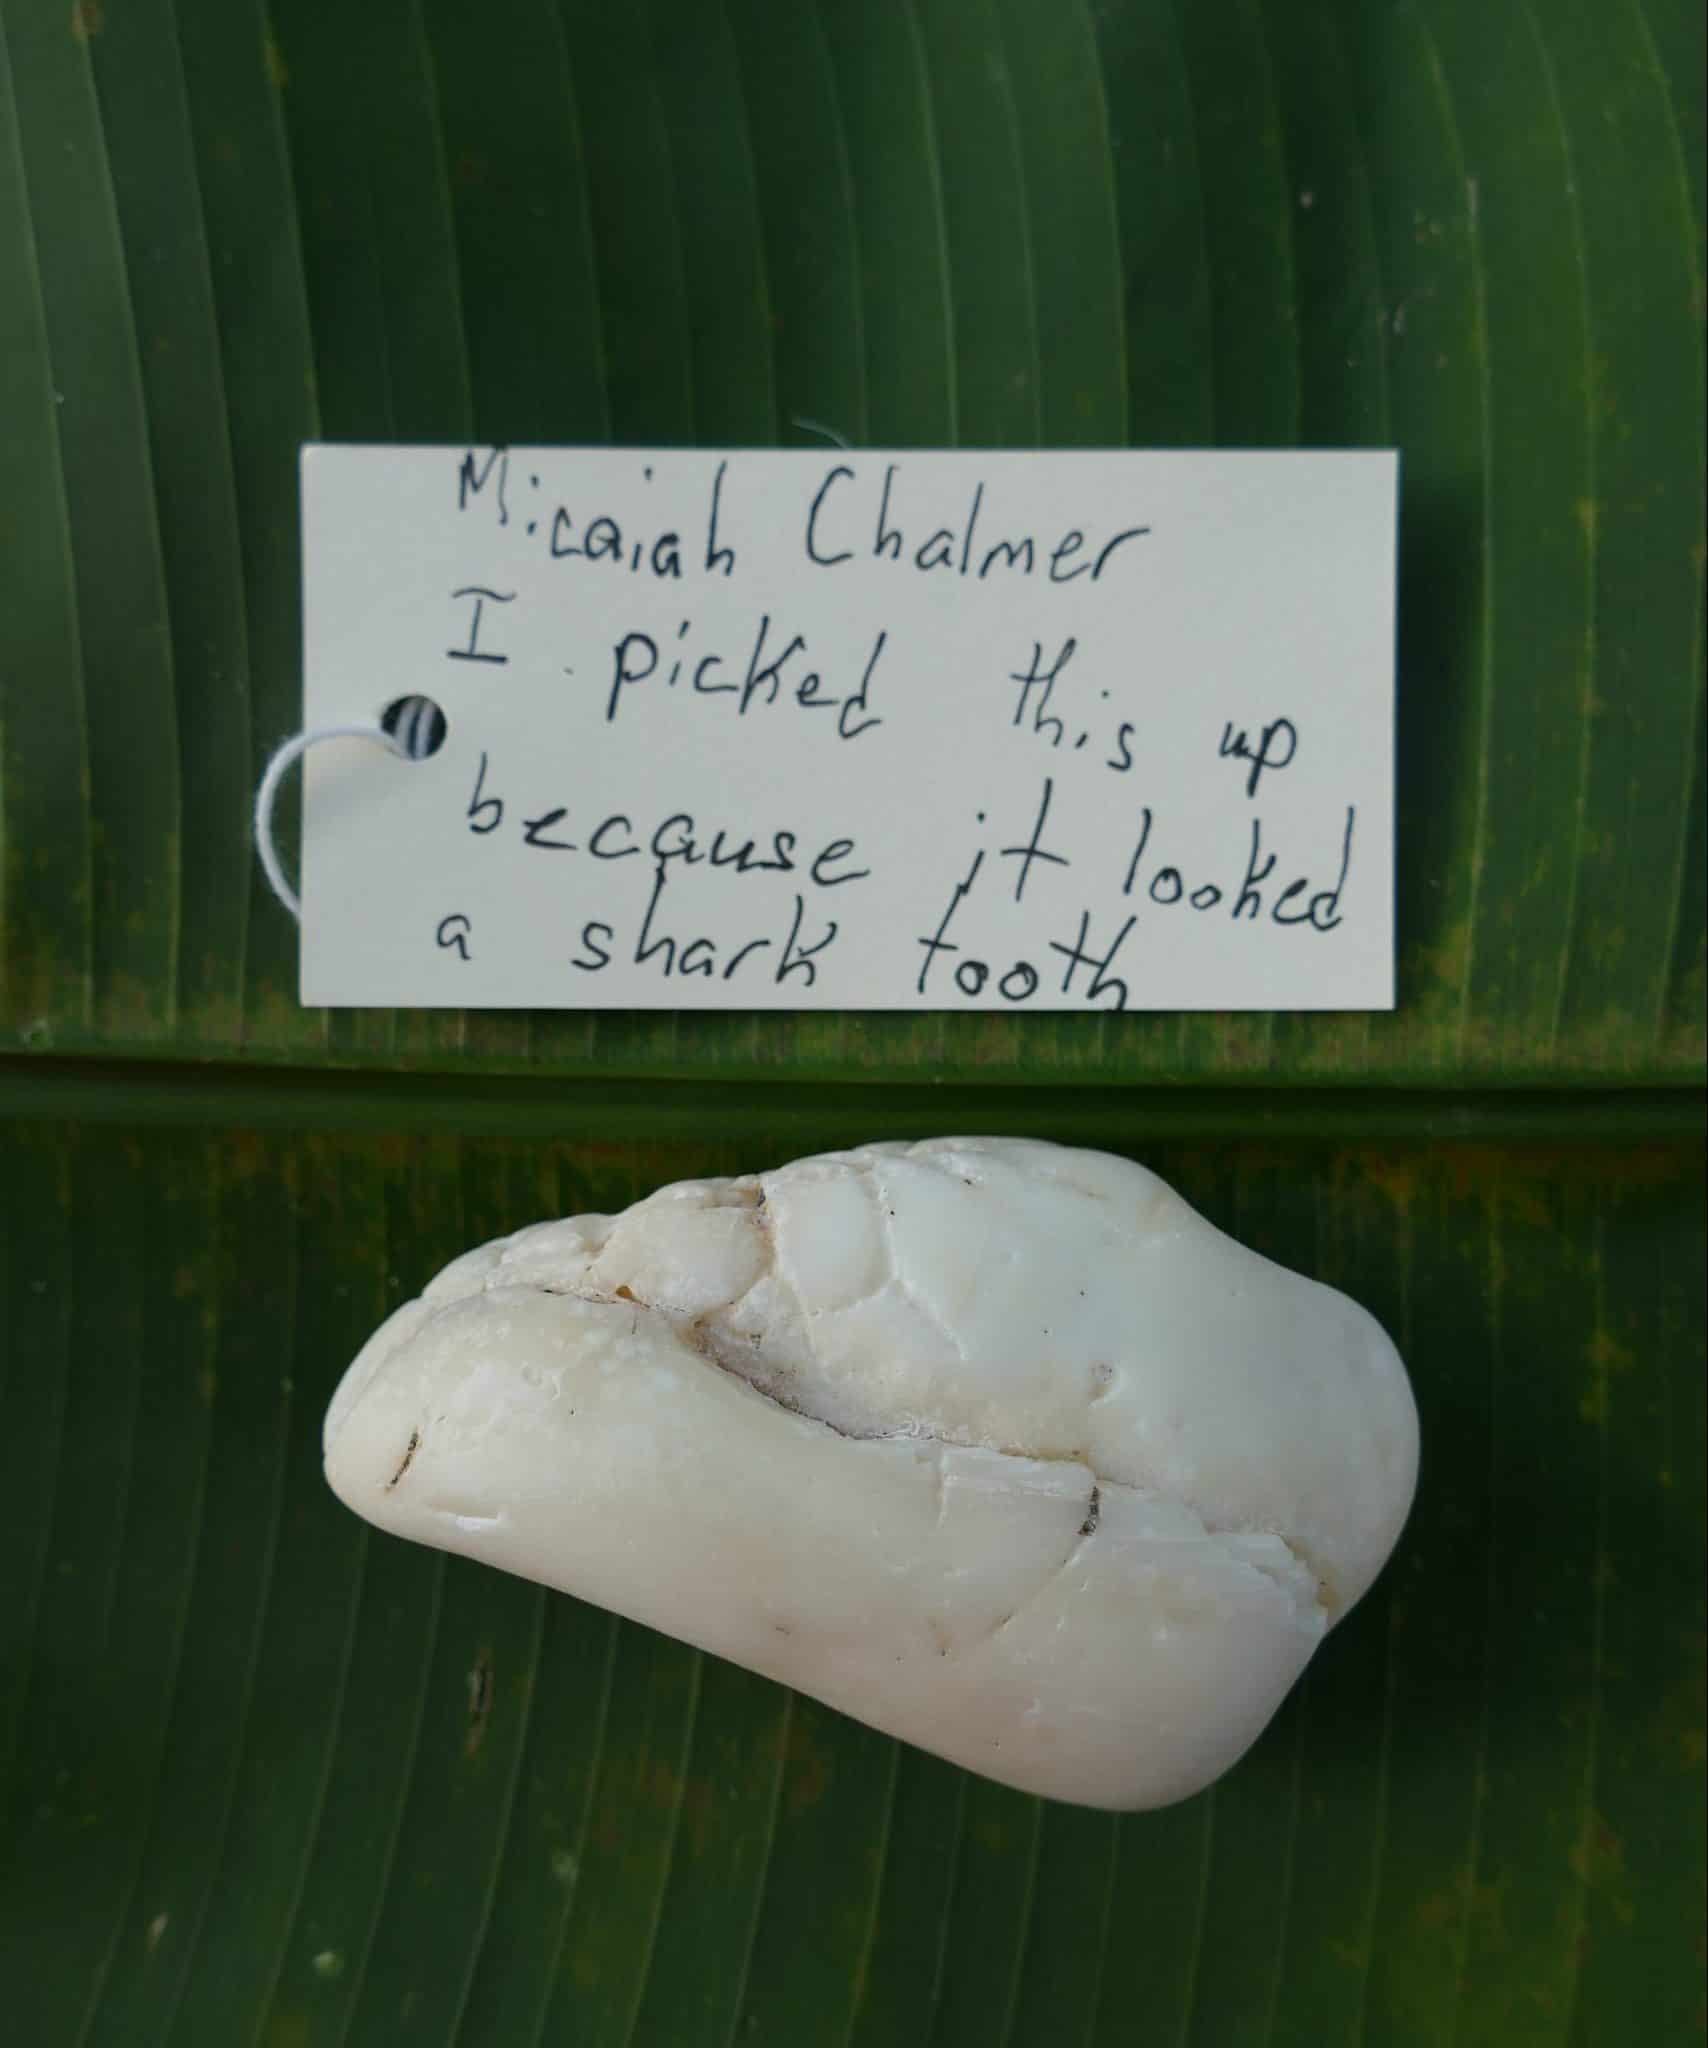 Micaiah Chalmer
I picked this up
because it looked
a shark tooth